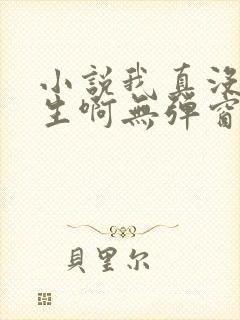 小說我真没
生啊無彈窗
貝里尔